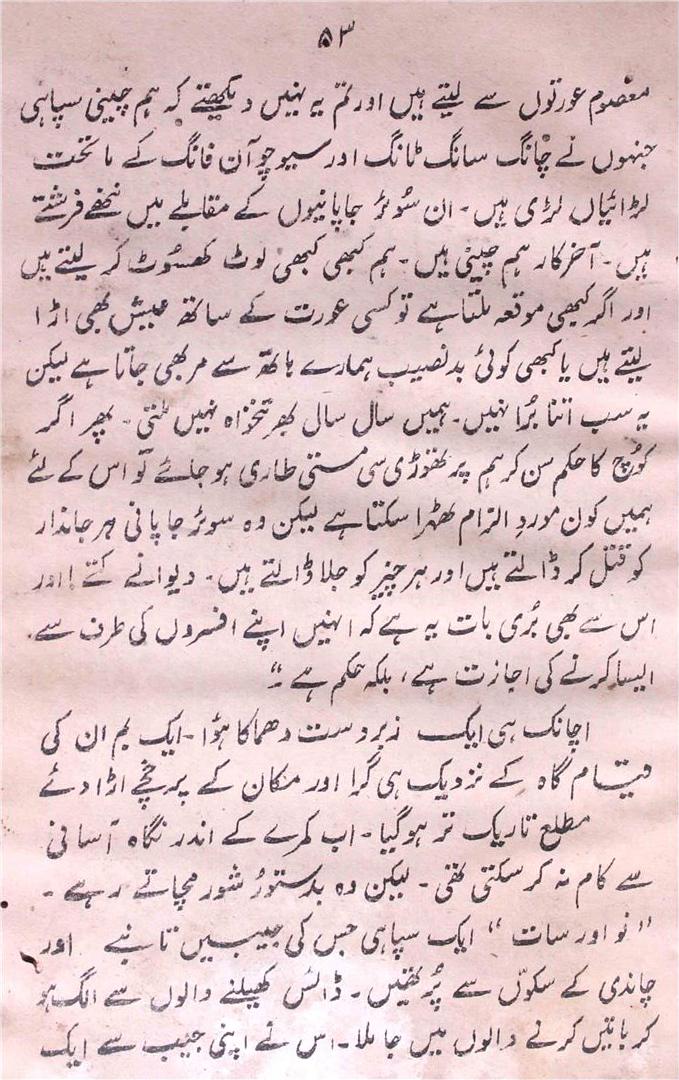 ۵۳
معصوم عورتوں سے لیتے ہیں اور تم یہ نہیں دیکھتے کہ ہم چینی سپاہی
جنہوں نے چانگ سانگ ٹانگ اور سیوچوآن فانگ کے ماتحت
لڑائیاں لڑی ہیں۔ ان سؤر جاپانیوں کے مقابلے میں ننھے فرشتے
ہیں۔ آخر کار ہم چینی ہیں۔ ہم کبھی کبھی لوٹ کھسوٹ کر لیتے ہیں
اور اگر کبھی موقعہ ملتا ہے تو کسی عورت کے ساتھ عیش بھی اڑا
لیتے ہیں یا کبھی کوئی بدنصیب ہمارے ہاتھ سے مر بھی جاتا ہے لیکن
یہ سب اتنا بُرا نہیں۔ ہمیں سال سال بھر تنخواہ نہیں ملتی۔ پھر اگر
کوُچ کا حکم سن کر ہم پر تھوڑی سی مستی طاری ہو جائے تو اس کے لئے
ہمیں کون موردِ الزام ٹھہرا سکتا ہے لیکن وہ سوئر جاپانی ہر جاندار
کو قتل کر ڈالتے ہیں اور ہر چیز کو جلا ڈالتے ہیں۔ دیوانے کتے! اور
اس سے بھی بُری بات یہ ہے کہ انہیں اپنے افسروں کی طرف سے
ایسا کرنے کی اجازت ہے، بلکہ حکم ہے۔“
اچانک ہی ایک زبردست دھماکا ہؤا۔ ایک بم ان کی
قیام گاہ کے نزدیک ہی گرا اور مکان کے پرخچے اڑا دئے
مطلع تاریک تر ہو گیا۔ اب کمرے کے اندر نگاہ آسانی
سے کام نہ کر سکتی تھی۔ لیکن وہ بدستور شور مچاتے رہے۔
”نو اور سات“ ایک سپاہی جس کی جیبیں تانبے اور
چاندی کے سکوں سے پُر تھیں۔ ڈائس کھیلنے والوں سے الگ ہو
کر باتیں کرنے والوں میں جا ملا۔ اس نے اپنی جیب سے ایک